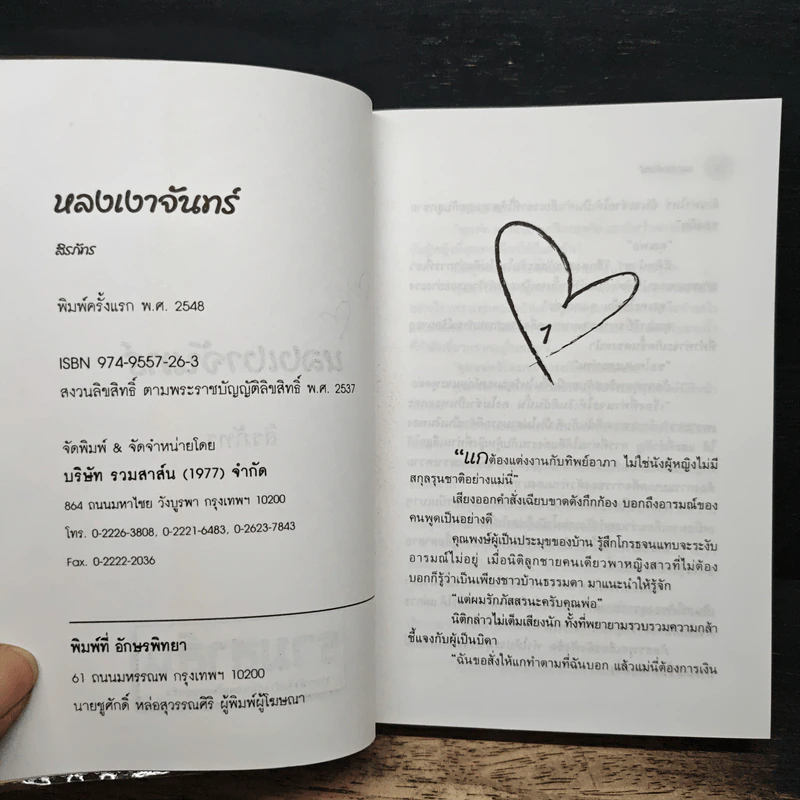 หลงเงาจันทร์
สิรภัทร
พิมพ์ครั้งแรก พ.ศ. 2548
ISBN 974-9557-26-3
สงวนลิขสิทธิ์ ตามพระราชบัญญัติลิขสิทธิ์ พ.ศ. 2537
จัดพิมพ์ & จัดจำหน่ายโดย
บริษัท รวมสาส์น (1977) จำกัด
864 ถนนมหาไชย วังบูรพา กรุงเทพฯ 10200
โทร. 0-2226-3808, 0-2221-6483, 0-2623-7843
Fax. 0-2222-2036
พิมพ์ที่ อักษรพิทยา
61 ถนนมหรรณพ กรุงเทพฯ 10200
นายชูศักดิ์ หล่อสุวรรณศิริ ผู้พิมพ์ผู้โฆษณา
1
“แกต้องแต่งงานกับทิพย์อาภา ไม่ใช่นังผู้หญิงไม่มี
สกุลรุนชาติอย่างแม่นี่”
เสียงออกคำสั่งเฉียบขาดดังกึกก้อง บอกถึงอารมณ์ของ
คนพูดเป็นอย่างดี
คุณพงษ์ผู้เป็นประมุขของบ้าน รู้สึกโกรธจนแทบจะระงับ
อารมณ์ไม่อยู่ เมื่อนิติลูกชายคนเดียวพาหญิงสาวที่ไม่ต้อง
บอกก็รู้ว่าเป็นเพียงชาวบ้านธรรมดา มาแนะนำให้รู้จัก
“แต่ผมรักภัสสรนะครับคุณพ่อ”
นิติกล่าวไม่เต็มเสียงนัก ทั้งที่พยายามรวบรวมความกล้า
ชี้แจงกับผู้เป็นบิดา
“ฉันขอสั่งให้แกทำตามที่ฉันบอก แล้วแม่นี่ต้องการเงิน